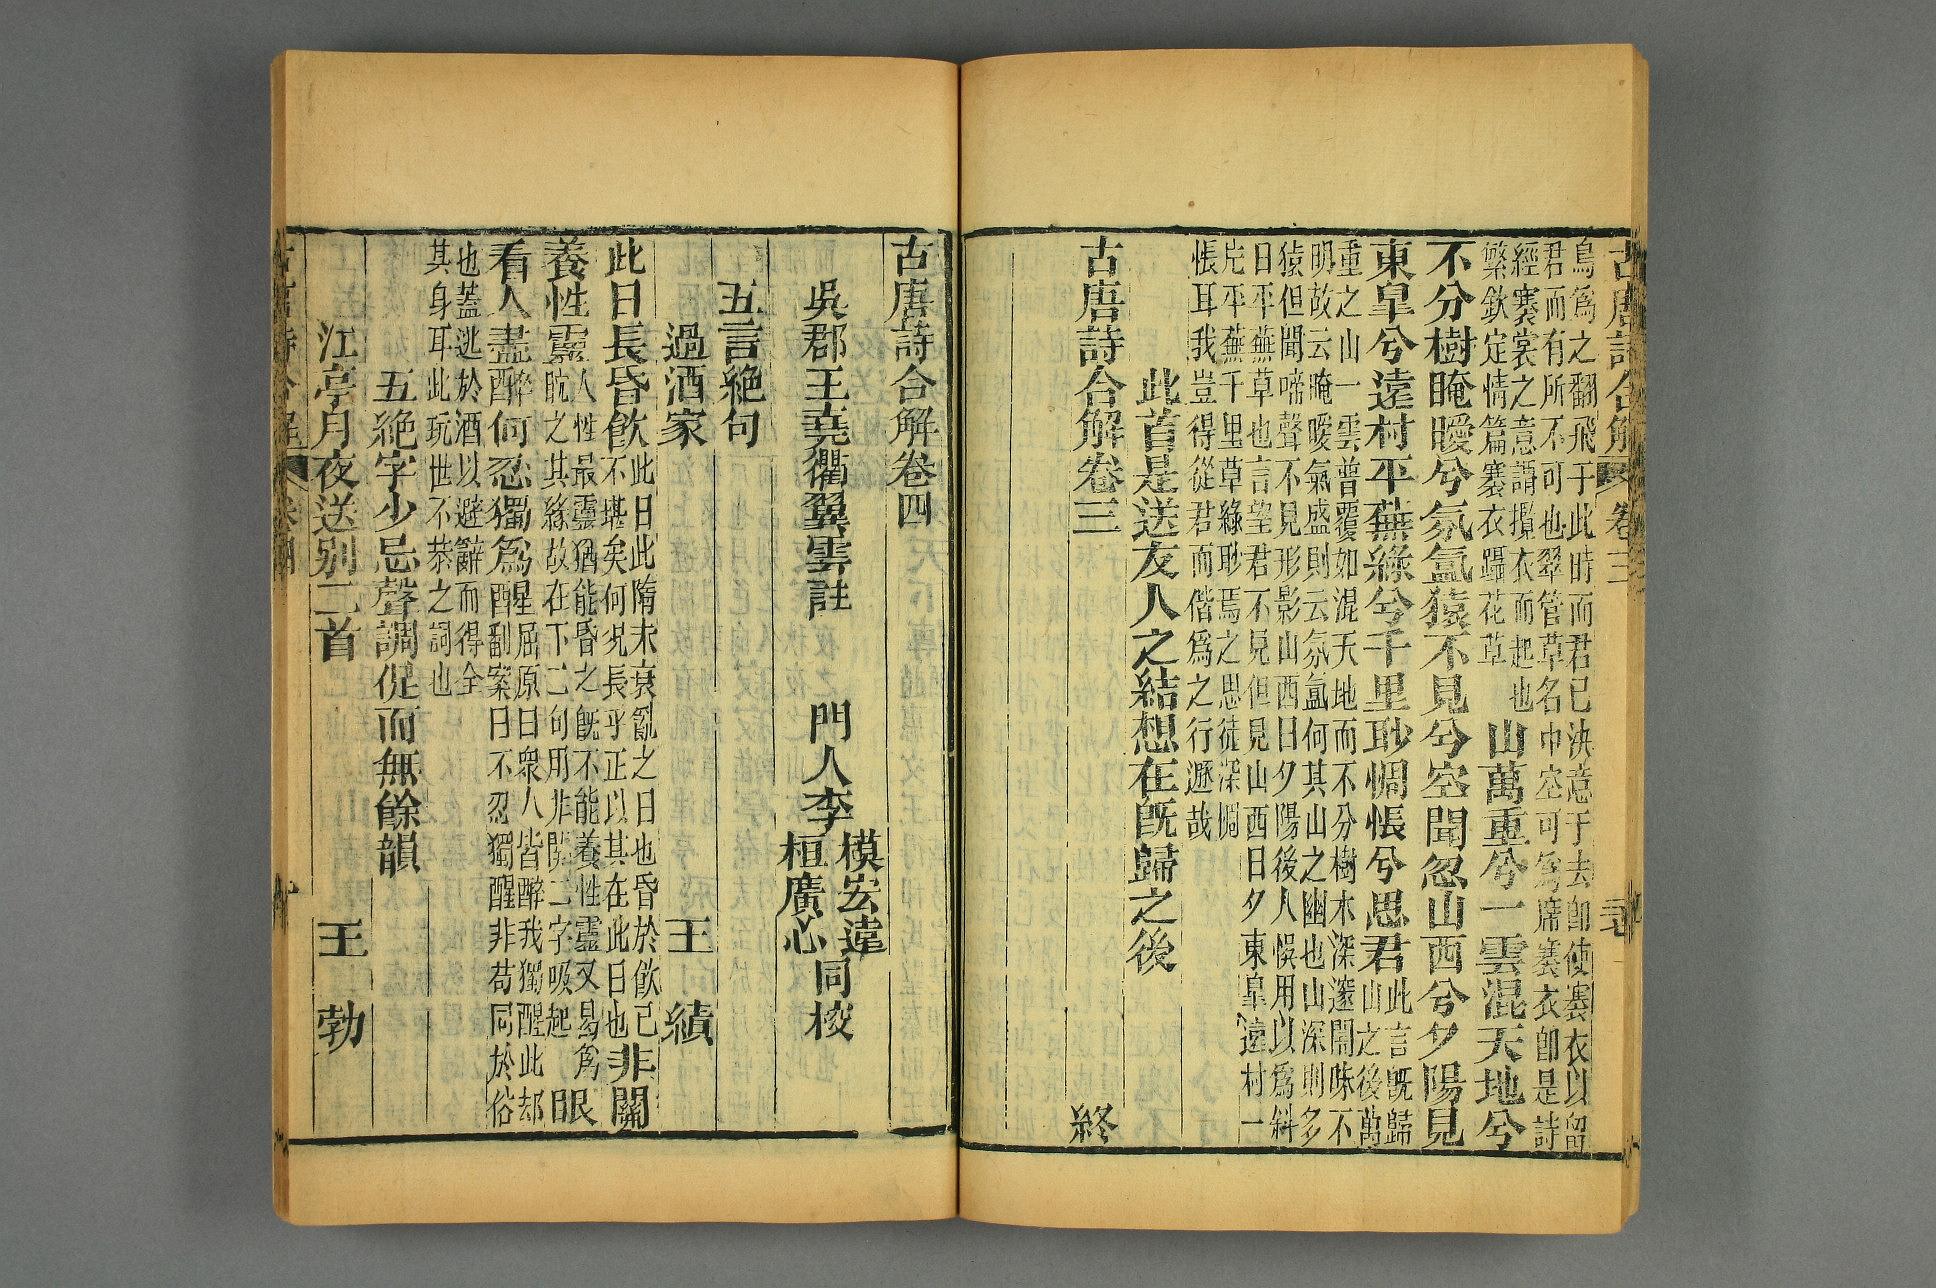 古唐詩合解 卷三
鳥爲之翻飛于此時而君已決意于去卽使褰衣以留
君而有所不可也翠管草名中空可爲席褰衣卽是詩
經褰裳之意謂攬衣而起也
繁欽定情篇褰衣躡花草
山萬重兮一雲混天地兮
不分樹晻曖兮氛氳猿不見兮空聞忽山西兮夕陽見
東臯兮遠村平蕪綠兮千里眇惆悵兮思君
此言旣歸
山之後萬
重之山一雲曾覆如混天地而不分樹木深邃闇昧不
明故云晻曖氣盛則云氛氳何其山之幽也山深則多
猿但聞啼聲不見形影山西日夕陽後人悞用以爲斜
日平蕪草也言望君不見但見山西日夕東臯遠村一
片平蕪千里草綠眇焉之思徒深惆
悵耳我豈得從君而偕爲之行遯哉
此首是送友人之結想在旣歸之後
古唐詩合解卷三 終
古唐詩合解卷四
吳郡王堯衢翼雲註 門人李
模宏遠
桓廣心
同校
五言絶句
過酒家 王績
此日長昏飮
此日此隋末衰亂之日也昏於飮已
不堪矣何况長乎正以其在此日也
非關
養性靈
人性最靈猶能昏之旣不能養性靈又易爲
眈之其緣故在下二句用非關二字吸起
眼
看人盡醉何忍獨爲醒
屈原日衆人皆醉我獨醒此却
翻案日不忍獨醒非苟同於俗
也蓋逃於酒以避辭而得全
其身耳此玩世不恭之詞也
五絶字少忌聲調促而無餘韻
江亭月夜送別二首 王勃
古唐詩合解 卷四